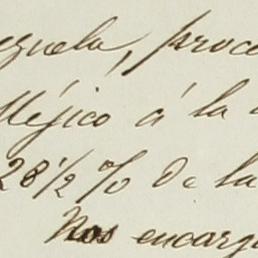 ezuela, proce
Méjico á la
28 1/2 % de la
Nos encarg